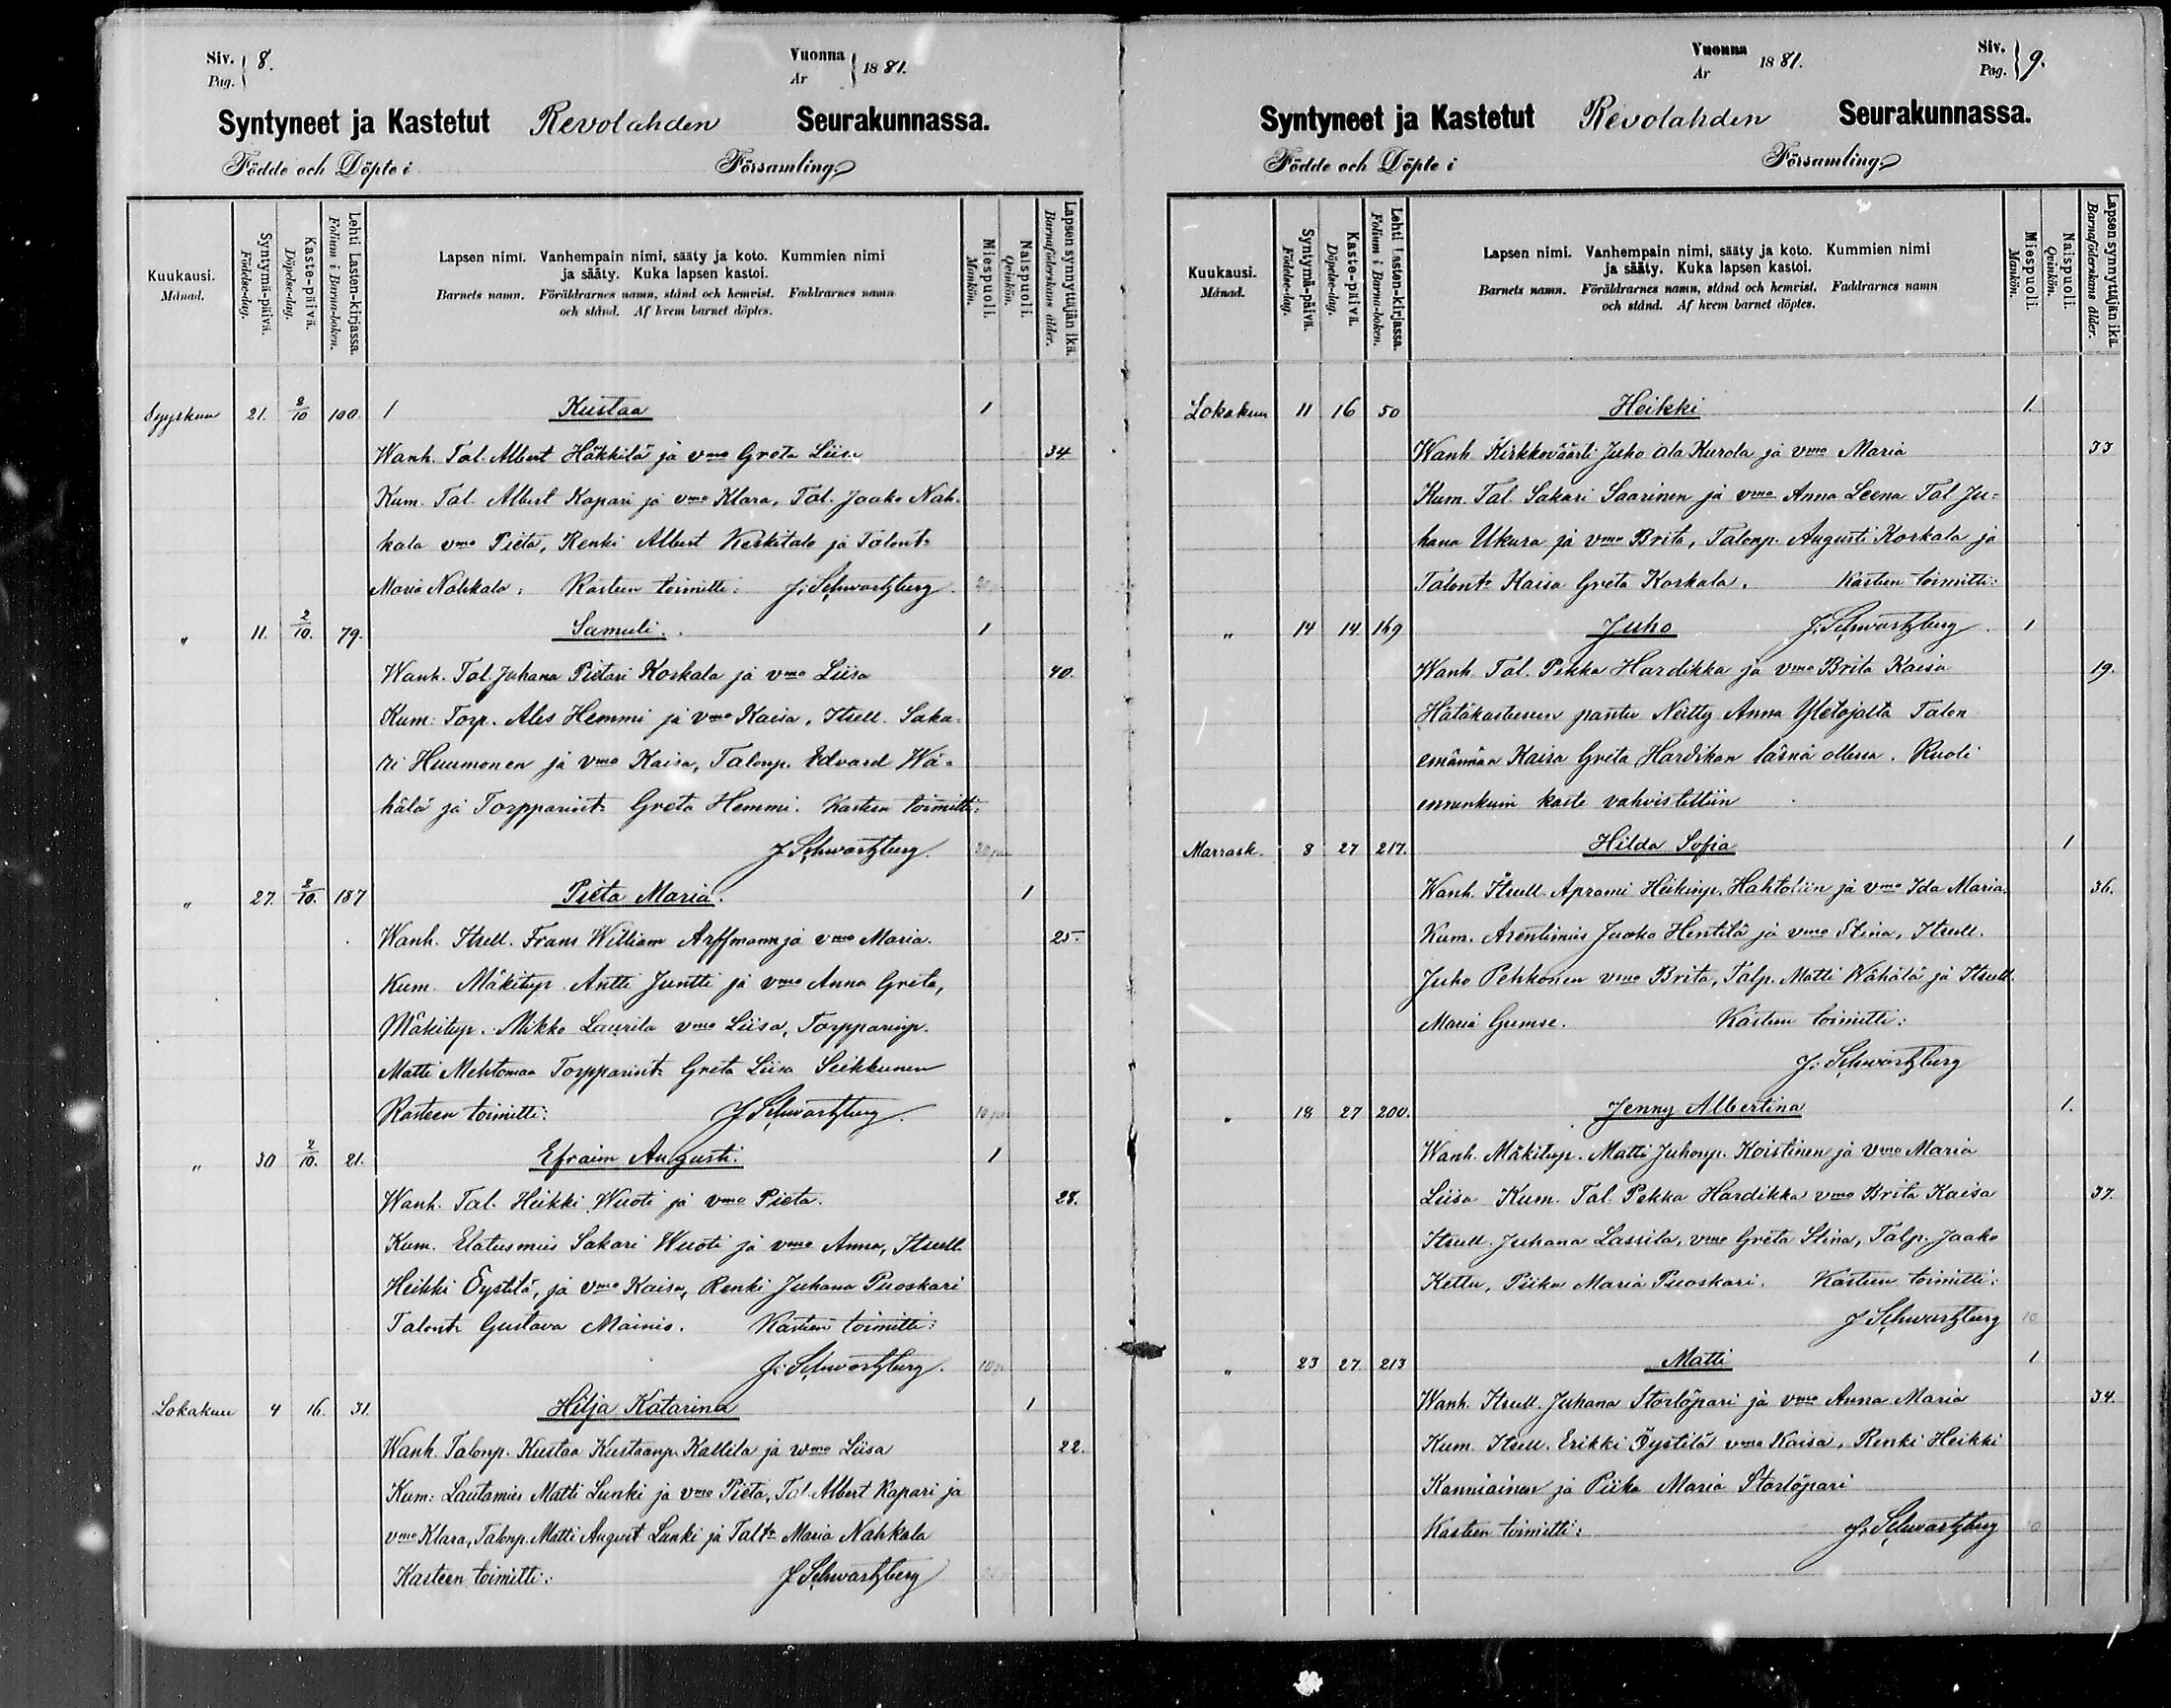 Siv. Pag. 8.
Vuonna År 1881.
Syntyneet ja Kastetut Revolahden Seurakunnassa.
Födde och Döpte i Församling
Kuukausi. Månad.
Syntymä-päivä. Födelse-dag.
Kaste-päivä. Döpelse-dag.
Lehti Lasten-kirjassa. Folium i Barna-boken.
Lapsen nimi. Vanhempain nimi, sääty ja koto. Kummien nimi
ja sääty. Kuka lapsen kastoi.
Barnets namn. Föräldrarnes namn, stånd och hemvist. Faddrarnes namn
och stånd. Af hvem barnet döptes.
Miespuoli. Mankön.
Naispuoli. Qvinkön.
Lapsen synnyttäjän ikä. Barnaföderskans ålder.
Syyskuu 21. 2/10 100. 1 Kustaa 1
Wanh. Tal. Albert Häkkilä ja vmo Greta Liisa 34
Kum. Tal. Albert Kapari ja vmo Klara, Tal. Jaako Nah-
kala vmo Pieta, Renki Albert Keskitalo ja Talont:
Maria Nahkala. Kasteen toimitti: J. Schwartzberg.
" 11. 2/10. 79. Samuli. 1
Wanh. Tal. Juhana Pietari Koskala ja vmo Liisa 40.
Kum: Torp. Ales Hemmi ja vmo Kaisa, Itsell. Saka-
ri Huumonen ja vmo Kaisa, Talonp. Edvard Wä-
hälä ja Torpparint: Greta Hemmi. Kasteen toimitti:
J Schwartzberg.
" 27. 2/10. 187 Pieta Maria. 1
Wanh. Itsell. Frans William Arffmann ja vmo Maria. 25.
Kum. Mäkitup. Antti Juntti ja vmo Anna Greta,
Mäkitup. Mikko Laurila vmo Liisa, Torpparinp.
Matti Mehtomaa Torpparint: Greta Liisa Seikkunen
Kasteen toimitti: J Schwartzberg.
" 30 2/10. 21. Efraim Augusti. 1
Wanh. Tal. Heikki Wuoti ja vmo Pieta. 28.
Kum. Elatusmies Sakari Wuoti ja vmo Anna, Itsell.
Heikki Öystilä, ja vmo Kaisa, Renki Juhana Puoskari
Talont: Gustava Mainio. Kasteen toimitti:
J. Schwartzberg.
Lokakuu 4 16. 31. Hilja Katarina 1
Wanh. Talonp. Kustaa Kustaanp. Kallila ja vmo Liisa 22.
Kum: Lautamies Matti Lunki ja vmo Pieta, Tal. Albert Kapari ja
vmo Klara, Talonp. Matti August Lunki ja Talt: Maria Nahkala
Kasteen toimitti: J Schwartzberg
Vuonna År 1881.
Siv. Pag. 9.
Syntyneet ja Kastetut Revolahden Seurakunnassa.
Födde och Döpte i Församling
Kuukausi. Månad.
Syntymä-päivä. Födelse-dag.
Kaste-päivä. Döpelse-dag.
Lehti Lasten-kirjassa. Folium i Barna-boken.
Lapsen nimi. Vanhempain nimi, sääty ja koto. Kummien nimi
ja sääty. Kuka lapsen kastoi.
Barnets namn. Föräldrarnes namn, stånd och hemvist. Faddrarnes namn
och stånd. Af hvem barnet döptes.
Miespuoli. Mankön.
Naispuoli. Qvinkön.
Lapsen synnyttäjän ikä. Barnaföderskans ålder.
Lokakuu 11 16 50 Heikki 1.
Wanh. Kirkkoväärti Juho Ala Kurola ja vmo Maria 33
Kum. Tal. Sakari Saarinen ja vmo Anna Leena Tal Ju-
hana Ukura ja vmo Brita, Talonp. Augusti Korkala ja
Talont: Kaisa Greta Korkala. Kasteen toimitti:
" 14 14. 169 Juho J. Schwartzberg. 1
Wanh. Tal. Pekka Hardikka ja vmo Brita Kaisa 19.
Hätäkasteesen pantu Neitty Anna Yletojalta Talon
emännän Kaisa Greta Hardikan läsnä ollessa. Kuoli
ennenkuin kaste vahvistettiin
Marrask. 8 27 217. Hilda Sofia 1
Wanh. Itsell. Aprami Heikinp. Hahtolin ja vmo Ida Maria. 36.
Kum. Arentimies Jaako Hentilä ja vmo Stina, Itsell.
Juho Pehkonen vmo Brita, Talp. Matti Wähälä ja Itsell.
Maria Gumse. Kasteen toimitti:
J. Schwartzberg
" 18 27 200. Jenny Albertina 1.
Wanh. Mäkitup. Matti Juhonp. Koistinen ja vmo Maria
Liisa Kum. Tal. Pekka Hardikka vmo Brita Kaisa 37.
Itsell. Juhana Lassila, vmo Greta Stina, Talp. Jaako
Kettu, Piika Maria Puoskari. Kasteen toimitti:
J Schwartzberg 10
" 23 27. 213 Matti 1
Wanh. Itsell. Juhana Storlöpari ja vmo Anna Maria 34.
Kum. Itsell. Erikki Öystilä vmo Kaisa, Renki Heikki
Kanniainen ja Piika Maria Storlöpari
Kasteen toimitti: J. Schwartzberg